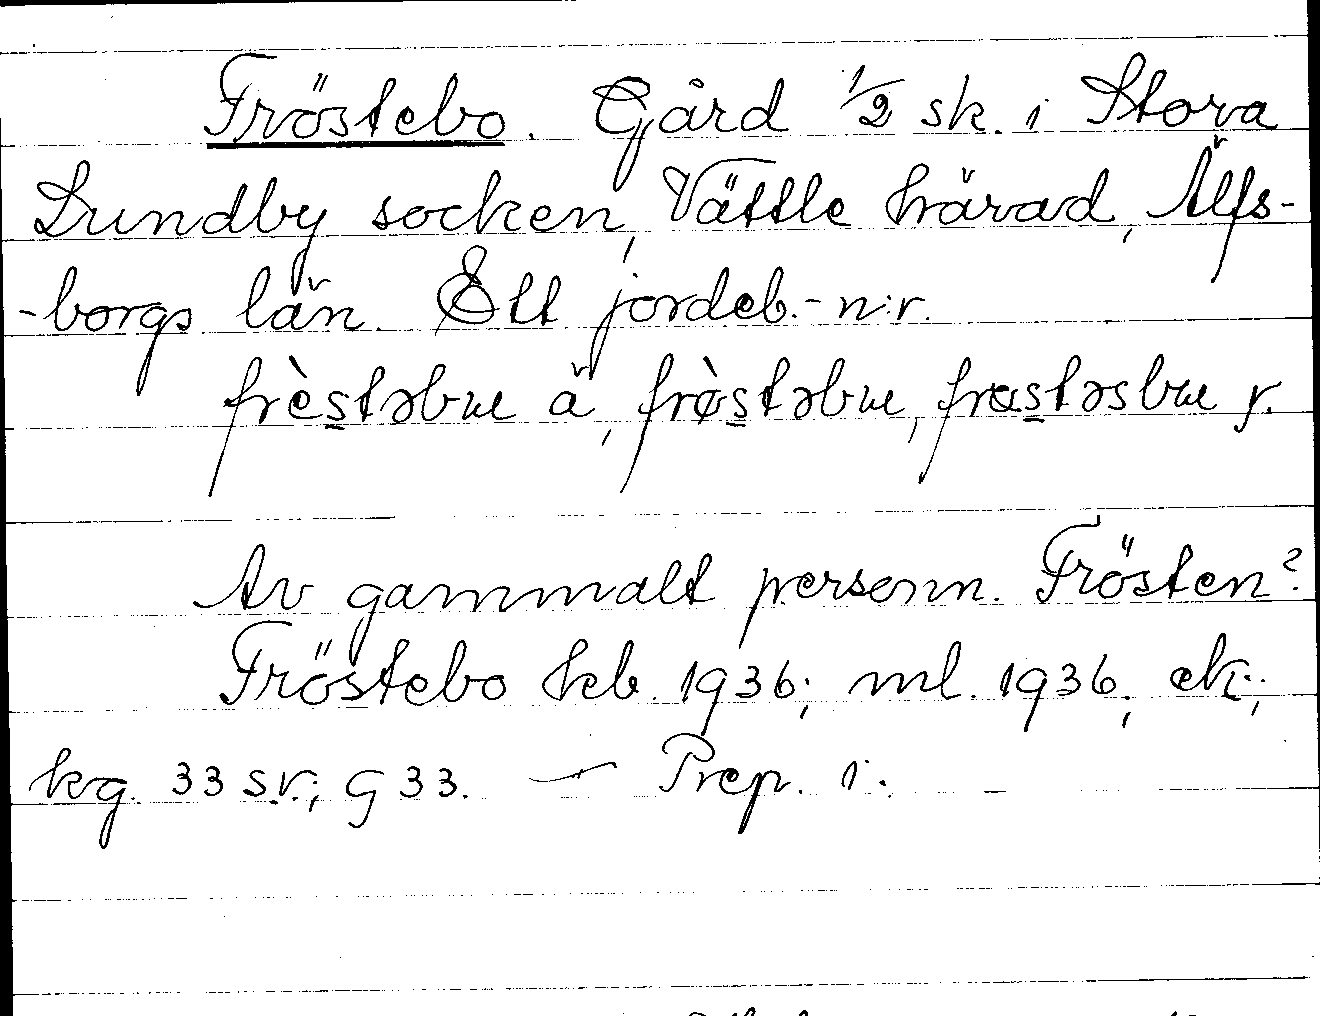 Fröstebo. Gård 1/2 sk. i Stora
Lundby socken, Vättle härad, Älfs-
-borgs län. Ett jordeb.-n:r.
frèstəbɯ ä, frøstəbɯ, fræstəsbɯ y.
Av gammalt personn. Frösten?
Fröstebo hcb. 1936; ml. 1936; ek;
krg. 33 s.v.; G 33. — Prep. i.